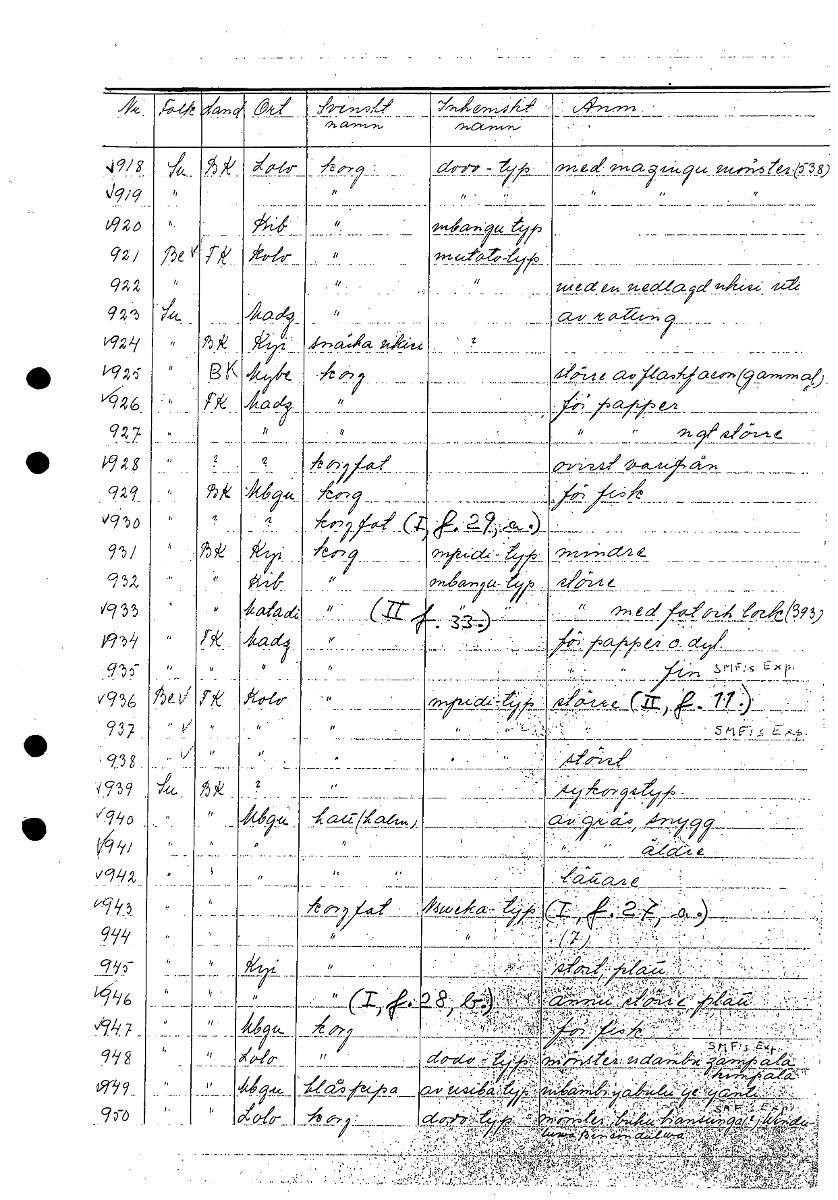 Nr Folk Land Ort Svenskt namn Inhemskt namn Anm.
√918 Su BK Lolo korg dodo-typ med mazingu mönster (538)
√919 " " " " " " "
√920 " Kib " mbangu typ
921 Be√ FK Kolo " mutoto-typ
922 " " " med en nedlagd nkisi uti
923 Su Madz " av rotting
√924 " BK Kyi snäcka nkisi ?
√925 " BK Mybe korg större av flaskfacon (gammal)
√926 " FK Madz " för papper
927 " " " " " ngt större
√928 " ? ? korgfat ovisst varifrån
929 " BK Mbgu korg för fisk
√930 " ? ? korgfat (I, f. 29, a.)
931 " BK Kyi korg mpidi-typ mindre
932 " " Kib " mbangu-typ större
√933 " " Matadi " (II f. 33.) " " " med fat och lock (393)
√934 " FK Madz " för papper o. dyl.
935 " " " " " " fin SMF:s Exp.
√936 Be√ FK Kolo " mpidi-typ större (II, f. 11.)
937 " √ " " " " " " SMF:s Exp.
938 " √ " " " " " störst
√939 Su BK ? " sykorgstyp
√940 " " Mbgu hatt (halm) av gräs, snygg
√941 " " " " " " äldre
√942 " " " " " lägre
√943 " " korgfat Nsweka-typ (I, f. 27, a.)
944 " " " " (7)
945 " " Kyi " " stort, platt
√946 " " " " (I, f. 28, b.) ännu större platt
√947 " " Mbgu korg för fisk
948 " " Lolo " dodo-typ mönster ndamba zampala SMF:s Exp.
kimpala
√949 " " Mbgu blåspipa av nsiba typ mbambi yabulu ye yantu
950 " Lolo korg dodo typ mönster buku SMF:s Exp.